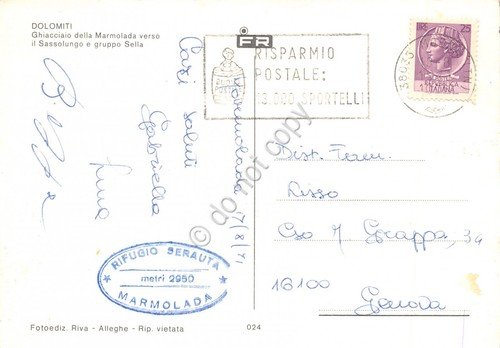 DOLOMITI
Ghiacciaio della Marmolada verso
il Sassolungo e gruppo Sella
Marmolada 17/8/71
Cari saluti
Gabriella
FR
RISPARMIO
POSTALE:
13.000 SPORTELLI
38033
L. 25
Dist. Fam.
Corso M
16100
Genova
RIFUGIO SERAUTA
metri 2950
MARMOLADA
Fotoediz. Riva - Alleghe - Rip. vietata
024
do not copy